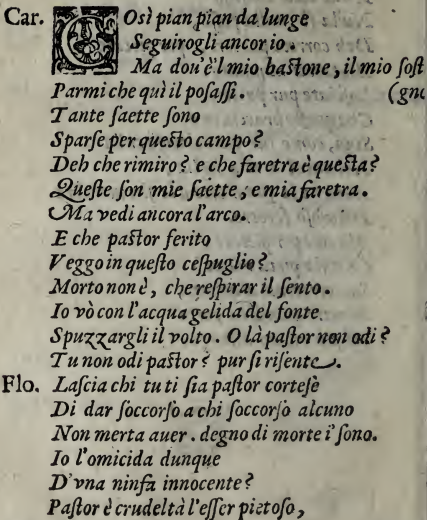 Car. COsì pian pian da lunge
Seguirogli ancor io.
Ma dou'è'l mio bastone, il mio sost
Parmi che quì il posassi. (gno
Tante saette sono
Sparse per questo campo?
Deh che rimiro? e che faretra è questa?
Queste son mie saette, e mia faretra.
Ma vedi ancora l'arco.
E che pastor ferito
Veggo in questo cespuglio?
Morto non è, che respirar il sento.
Io vò con l'acqua gelida del fonte
Spuzzargli il volto. O là pastor non odi?
Tu non odi pastor? pur si risente.
Flo. Lascia chi tu ti sia pastor cortese
Di dar soccorso a chi soccorso alcuno
Non merta auer. degno di morte i' sono.
Io l'omicida dunque
D'vna ninfa innocente?
Pastor è crudeltà l'esser pietoso,